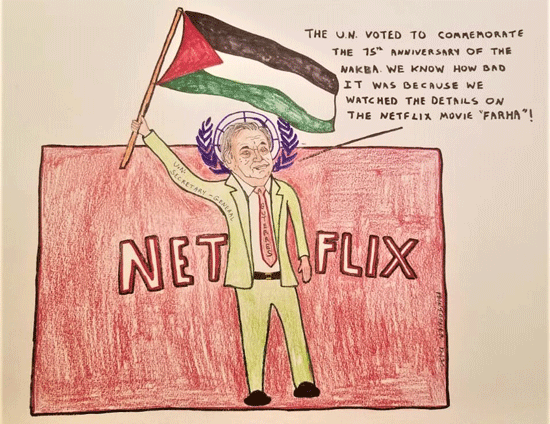 THE U.N. VOTED TO COMMEMORATE
THE 75TH ANNIVERSARY OF THE
NAKBA. WE KNOW HOW BAD
IT WAS BECAUSE WE
WATCHED THE DETAILS ON
THE NETFLIX MOVIE "FARHA"!
U.N.
SECRETARY-GENERAL
GUTERRES
NETFLIX